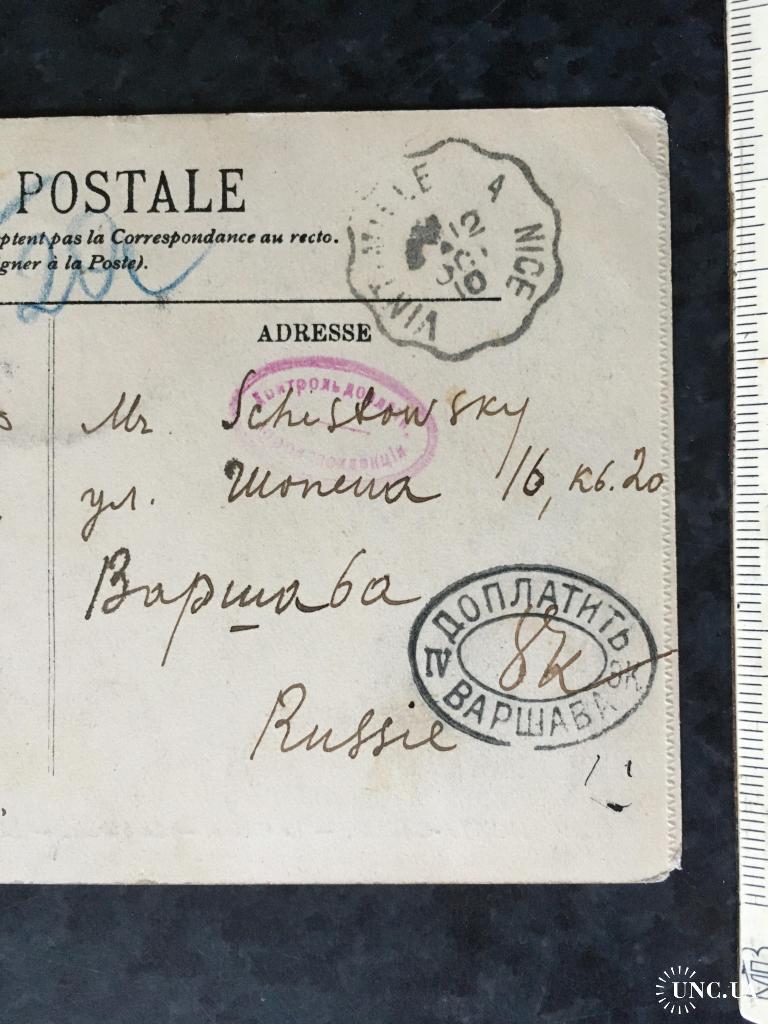 POSTALE
ptent pas la Correspondance au recto.
gner à la Poste).
VINTIMILLE A NICE
12
10
ADRESSE
Контроль доплатн. корреспонденціи
Mr Schistowsky
ул. Шопена 16, кв. 20
Варшава
Russie
ДОПЛАТИТЬ
IV
8к
ВАРШАВА
UNC.UA